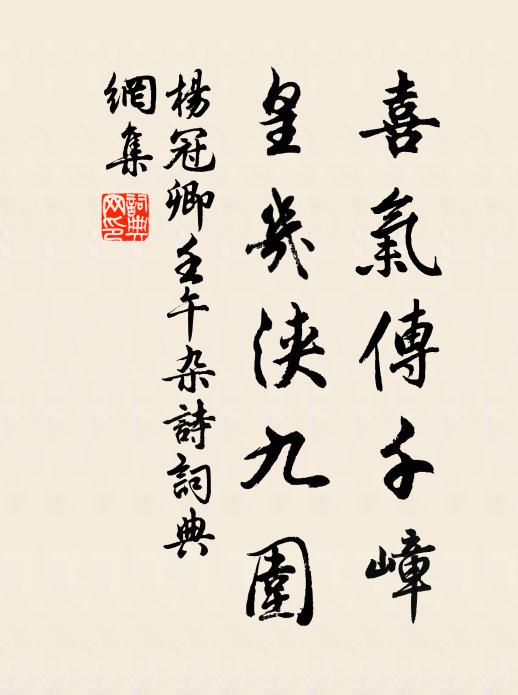 喜氣傳千嶂
皇幾浹九圍
楊冠卿壬午杂詩詞典
網集
詞典网印